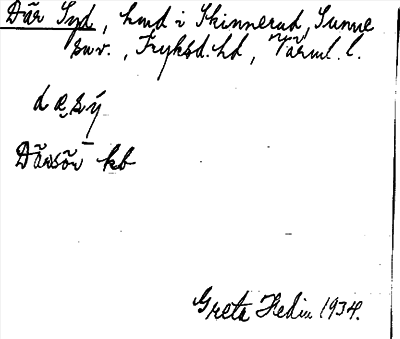 Där Syd, hmd i Skinnerud, Sunne
sn., Fryksd. hd, Värml. l.
Därsön kb
Greta Hedin 1934.